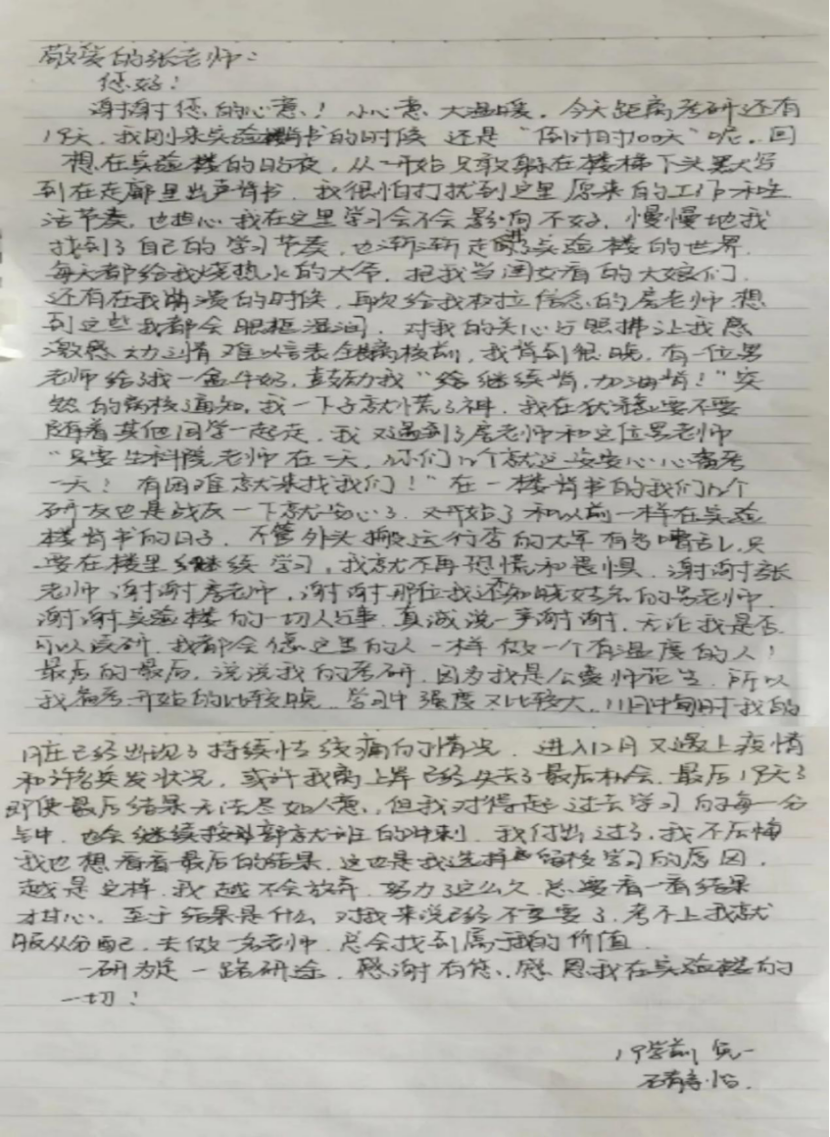 敬爱的张老师：
您好！
谢谢您的心意！小心意大温暖。今天距离考研还有
19天，我刚来实验楼背书的时候还是“倒计时100天”呢。回
想在实验楼的日日夜夜，从一开始只敢躲在楼梯下头默写
到在走廊里出声背书。我很怕打扰到这里原来的工作和生
活节奏，也担心我在这里学习会不会影响不好，慢慢地我
找到了自己的学习节奏，也渐渐走进了实验楼的世界。
每天都给我烧热水的大爷，把我当闺女看的大娘们，
还有在我崩溃的时候，再次给我树立信念的房老师想
到这些我都会眼框湿润，对我的关心与照拂让我感
激，我背到很晚，有一位男
老师给了我一盒牛奶，鼓励我“继续背，加油背！”突
然的通知，我一下子就慌了神，我在犹豫要不要
随着其他同学一起走，我又遇到了房老师和这位男老师
“只要生科院老师在一天，你们几个就安安心心备考
一天！有困难就来找我们！”在一楼背书的我们几个
研友也是战友一下就安心了，又开始了和以前一样在实验
楼背书的日子，不管外头搬运行李的大军有多嘈乱，只
要在楼里继续学习，我就不再恐慌和畏惧。谢谢张
老师，谢谢房老师，谢谢那位我还不知晓姓名的男老师，
谢谢实验楼的一切人与事，真诚说一声谢谢，无论我是否
可以读研，我都会像这里的人一样做一个有温度的人！
最后的最后，说说我的考研，因为我是公费师范生，所以
我备考开始的比较晚，学习强度又比较大，11月中旬时我的
已经出现了持续性绞痛的情况，进入12月又遇上疫情
和许多突发状况，或许我离上岸已经失去了最后机会，最后19天了
即使最后结果无法尽如人意，但我对得起过去学习的每一分
钟，也会继续按部就班的冲刺，我付出过了，我不后悔
我也想看看最后的结果，这也是我选择留校学习的原因，
越是这样，我越不会放弃，努力了这么久总要看一看结果
才甘心，至于结果是什么，对我来说已经不重要了，考不上我就
服从分配，去做一名老师，总会找到属于我的价值，
一研为定，一路研途，感谢有您，感恩我在实验楼的
一切！
19学前